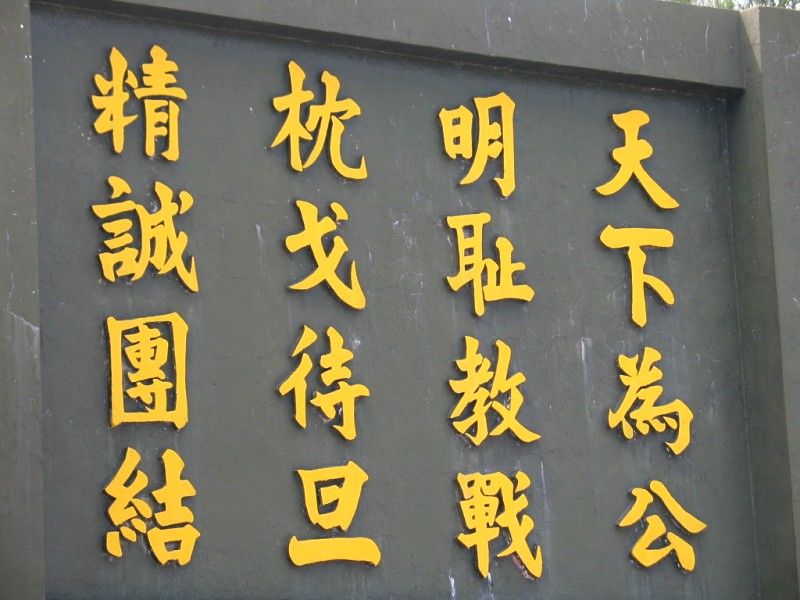 天下為公
明耻教戰
枕戈待旦
精誠團結